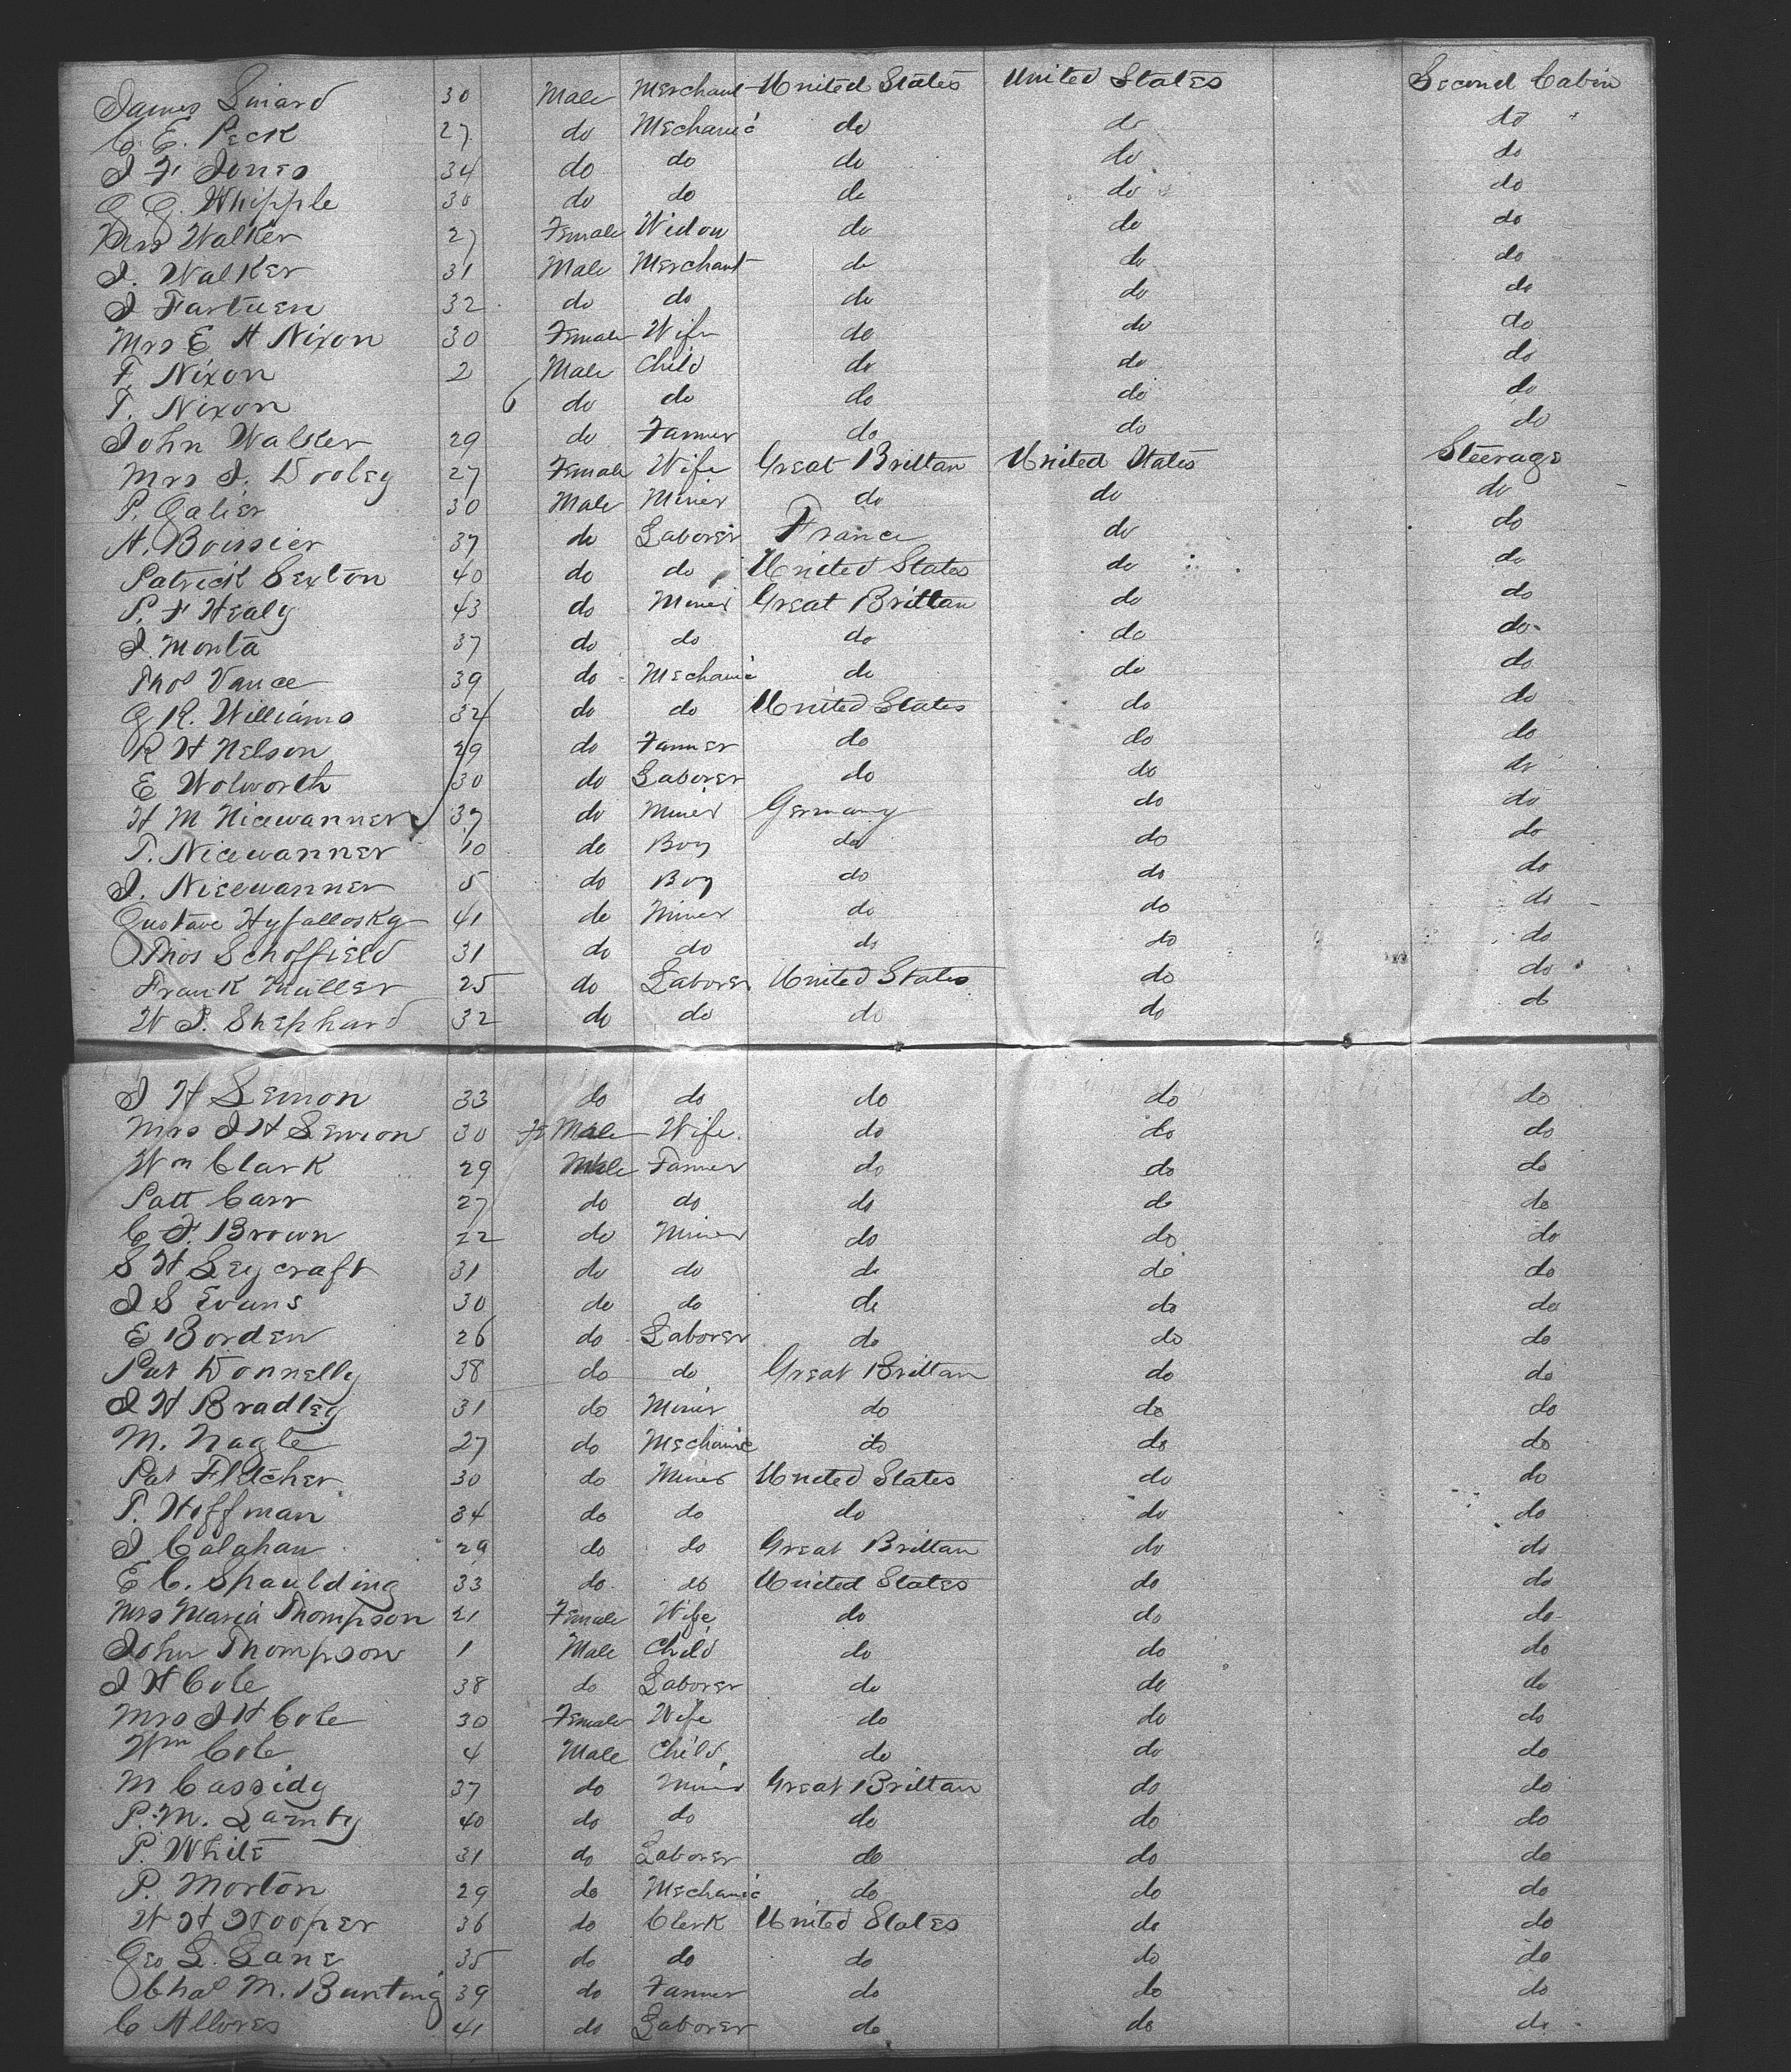 James Liniard 30 Male Merchant United States United States Second Cabin
C. E. Peck 27 do Mechanic do do do
J F Jones 34 do do do do do
G G. Whipple 30 do do do do do
Mrs Walker 27 Female Widow do do do
J. Walker 31 Male Merchant do do do
J Fartuen 32 do do do do do
Mrs E H Nixon 30 Female Wife do do do
F. Nixon 2 Male Child do do do
T. Nixon 6 do do do do do
John Walker 29 do Farmer do do do
Mrs J. Dooley 27 Female Wife Great Brittan United States Steerage
P. Galier 30 Male Miner do do do
A. Boussier 37 do Laborer France do do
Patrick Sexton 40 do do United States do do
P. F Healy 43 do Miner Great Brittan do do
J. Monta 37 do do do do do
Thos Vance 39 do Mechanic do do do
G R. Williams 32 do do United States do do
R H Nelson 29 do Farmer do do do
E Wolworth 30 do Laborer do do do
H M Nicewanner 37 do Miner Germany do do
T. Nicewanner 10 do Boy do do do
J. Nicewanner 5 do Boy do do do
Gustave Hyfallosky 41 do Miner do do do
Thos Schoffield 31 do do do do do
Frank Muller 25 do Laborer United States do do
W P. Shephard 32 do do do do do
J H Lemon 33 do do do do do
Mrs J H Lemon 30 FeMale Wife do do do
Wm Clark 29 Male Farmer do do do
Patt Carr 27 do do do do do
C F. Brown 22 do Miner do do do
S H Leycraft 31 do do do do do
J S Evans 30 do do do do do
E Borden 26 do Laborer do do do
Pat Donnelly 38 do do Great Brittan do do
J H Bradley 31 do Miner do do do
M. Nagle 27 do Mechanic do do do
Pat Fletcher 30 do Miner United States do do
P. Hoffman 34 do do do do do
J Calahan 29 do do Great Brittan do do
E C. Spaulding 33 do do United States do do
Mrs Maria Thompson 21 Female Wife do do do
John Thompson 1 Male Child do do do
J H Cole 38 do Laborer do do do
Mrs J H Cole 30 Female Wife do do do
Wm Cole 4 Male Child do do do
M Cassidy 37 do Miner Great Brittan do do
P. M. Lamty 40 do do do do do
P. White 31 do Laborer do do do
P. Morton 29 do Mechanic do do do
W H Hooper 36 do Clerk United States do do
Geo L. Lane 35 do do do do do
Chas M. Bunting 39 do Farmer do do do
C Allores 41 do Laborer do do do